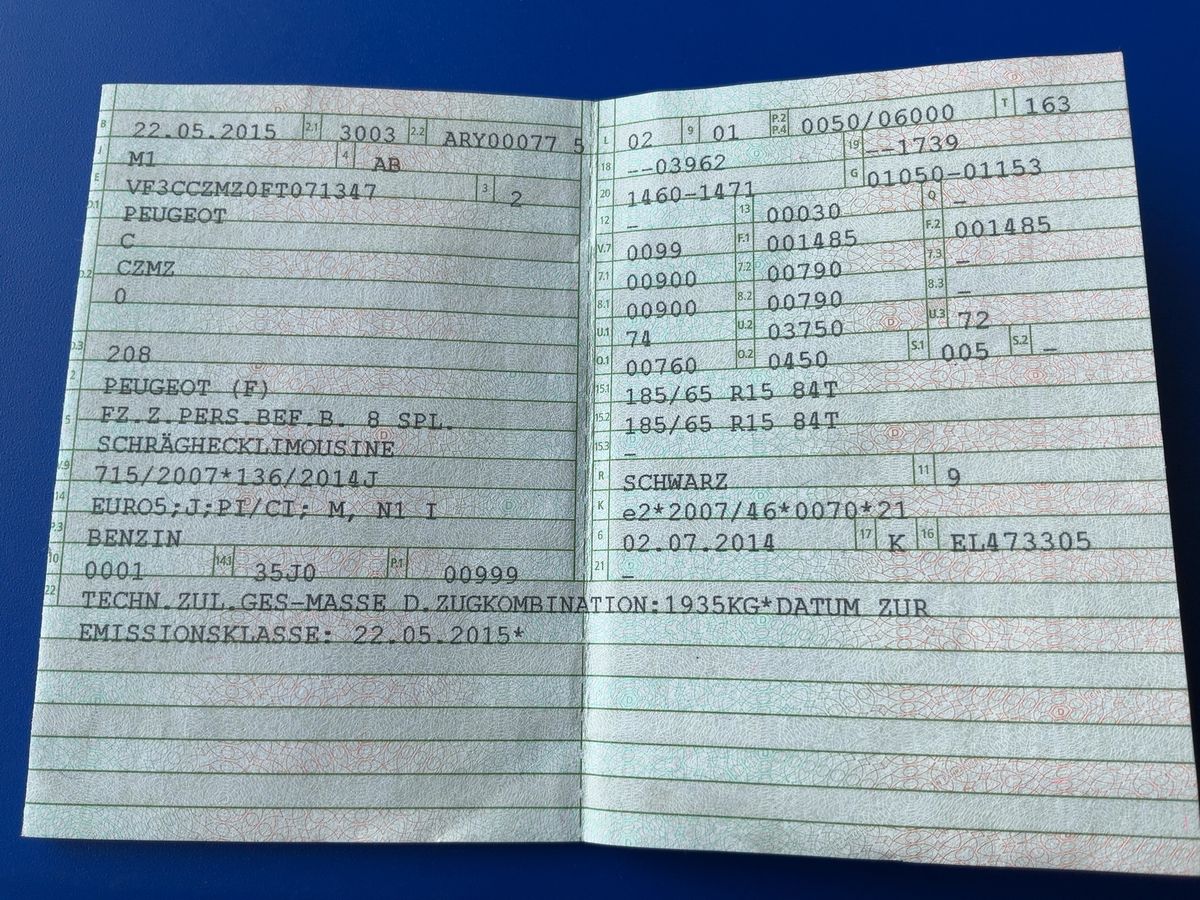 B 22.05.2015 2.1 3003 2.2 ARY00077 5
J M1 4 AB
E VF3CCZMZ0FT071347 3 2
D.1 PEUGEOT
C
D.2 CZMZ
0
D.3 208
2 PEUGEOT (F)
5 FZ.Z.PERS.BEF.B. 8 SPL.
SCHRÄGHECKLIMOUSINE
V.9 715/2007*136/2014J
14 EURO5;J;PI/CI; M, N1 I
P.3 BENZIN
10 0001 14.1 35J0 P.1 00999
L 02 9 01 P.2 P.4 0050/06000 T 163
18 --03962 19 --1739
20 1460-1471 G 01050-01153
12 – 13 00030 Q –
V.7 0099 F.1 001485 F.2 001485
7.1 00900 7.2 00790 7.3 –
8.1 00900 8.2 00790 8.3 –
U.1 74 U.2 03750 U.3 72
O.1 00760 O.2 0450 S.1 005 S.2 –
15.1 185/65 R15 84T
15.2 185/65 R15 84T
15.3 –
R SCHWARZ 11 9
K e2*2007/46*0070*21
6 02.07.2014 17 K 16 EL473305
21 –
22 TECHN.ZUL.GES-MASSE D.ZUGKOMBINATION:1935KG*DATUM ZUR
EMISSIONSKLASSE: 22.05.2015*